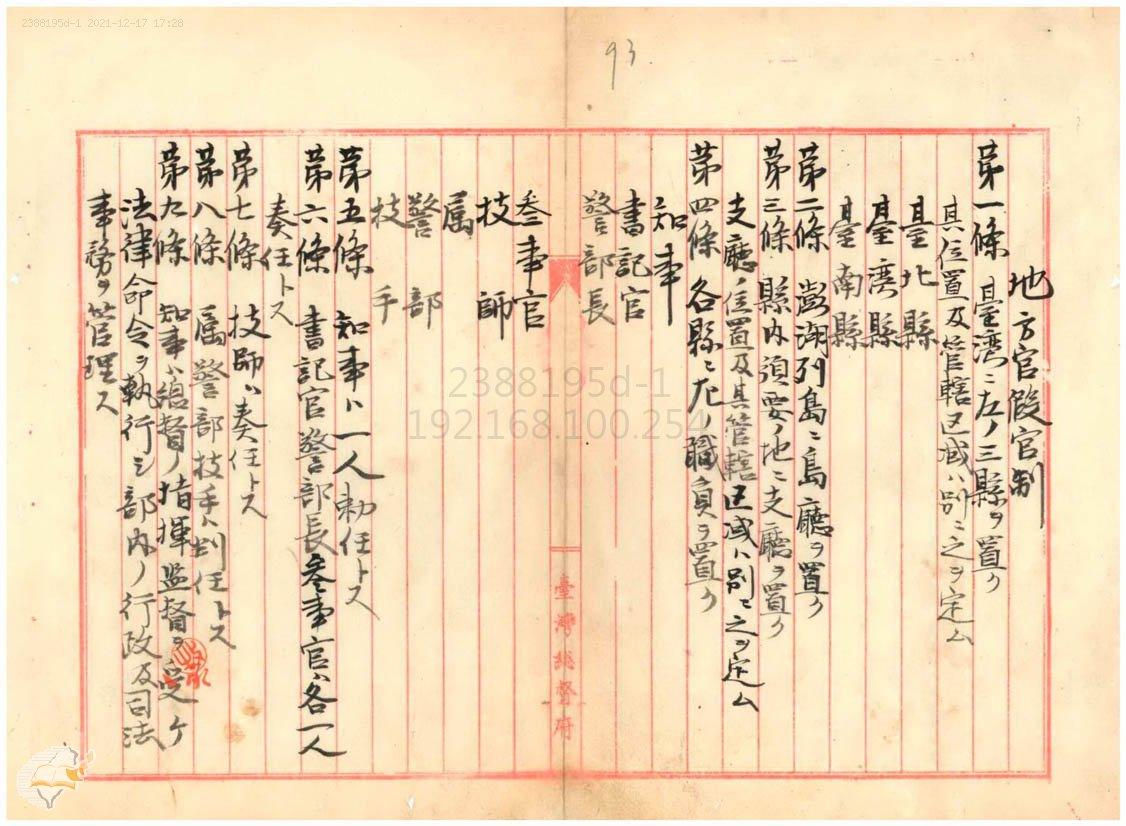 2388195d-1 2021-12-17 17:28
93
地方官假官制
第一條 臺湾ニ左ノ三縣ヲ置ク
其位置及管轄区域ハ別ニ之ヲ定ム
臺北縣
臺湾縣
臺南縣
第二條 澎湖列島ニ島廳ヲ置ク
第三條 縣内須要ノ地ニ支廳ヲ置ク
支廳ノ位置及其管轄区域ハ別ニ之ヲ定ム
第四條 各縣ニ左ノ職員ヲ置ク
知事
書記官
警部長
叄事官
技師
属
警部
技手
第五條 知事ハ一人勅任トス
第六條 書記官警部長叄事官ハ各一人
奏任トス
第七條 技師ハ奏任トス
第八條 属警部技手ハ判任トス
第九條 知事ハ總督ノ指揮監督ヲ受ケ
法律命令ヲ執行シ部内ノ行政及司法
事務ヲ管理ス
臺灣總督府
2388195d-1
192.168.100.254